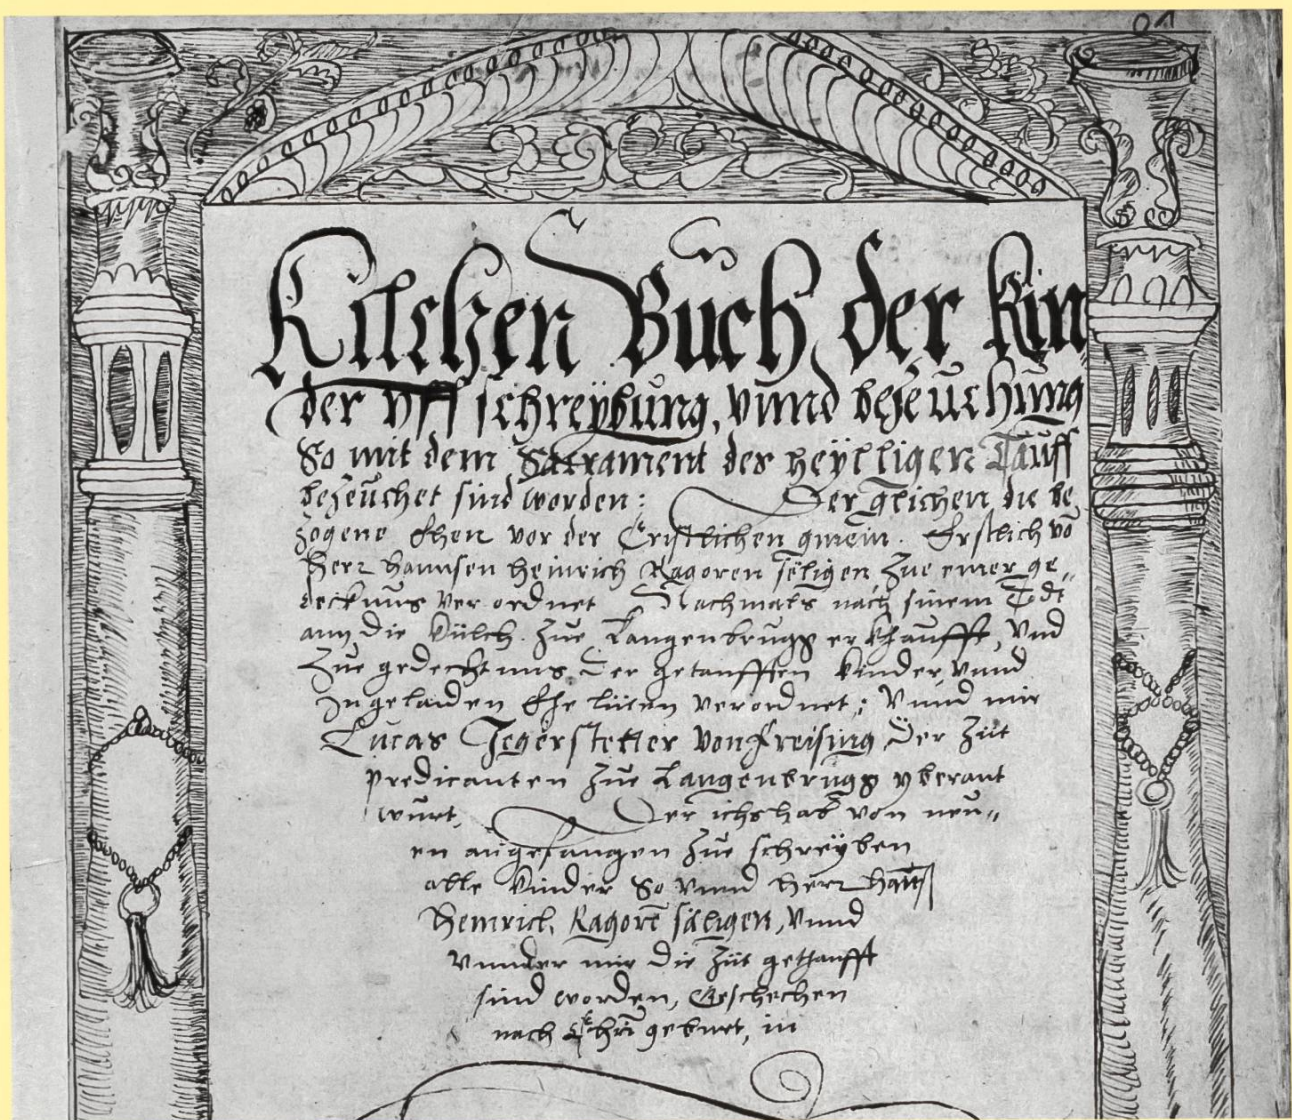 Kilchen Buch der Kin
der uff schreÿbung, vnnd bezeuchung
So mit dem Sacrament des heÿlligen Tauff
bezeuchet sind worden: Der glichen die be
zogene Ehen vor der Cristlichen gmein. Erstlich vo
Herr Hannsen Heinrich Ragoren seligen Zue einer ge„
decktnus ver ordnet Nachmals nach sinem Todt
ann die Kilch Zue Langenbrugg er khaufft, vnd
Zue gedechtnus der getaufften Kinder, vnnd
Ingelaiden Ehe lüten verordnet; vnnd mir
Lucas Jegerstetter von freising, Der Züt
predicanten Zue Langenbrugg yberant
wurt, Der ichs hab von neu„
en angefangen Zue schreÿben
alle Kinder So vnnd Herr Han
Heinrich Ragore säligen, vnnd
vnnder mir die Züt gethaufft
sind worden, Geschechen
nach Chri geburt, in